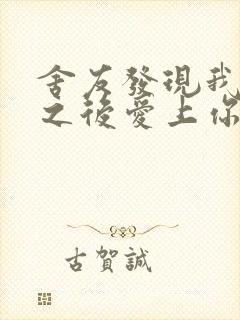 舍友發現我
之後愛上你
古賀誠